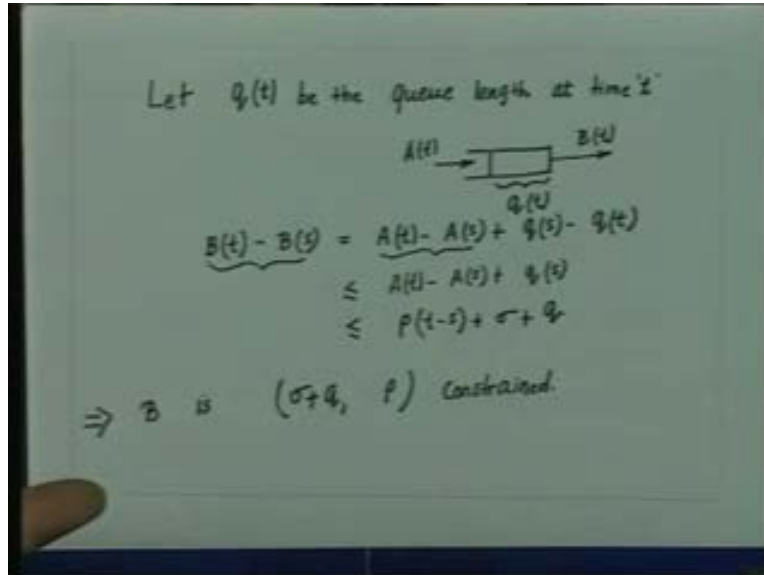 Let q(t) be the queue length at time 't'
A(t) B(t)
q(t)
B(t) - B(s) = A(t) - A(s) + q(s) - q(t)
≤ A(t) - A(s) + q(s)
≤ ρ(t-s) + σ + q
⇒ B is (σ+q, ρ) constrained.